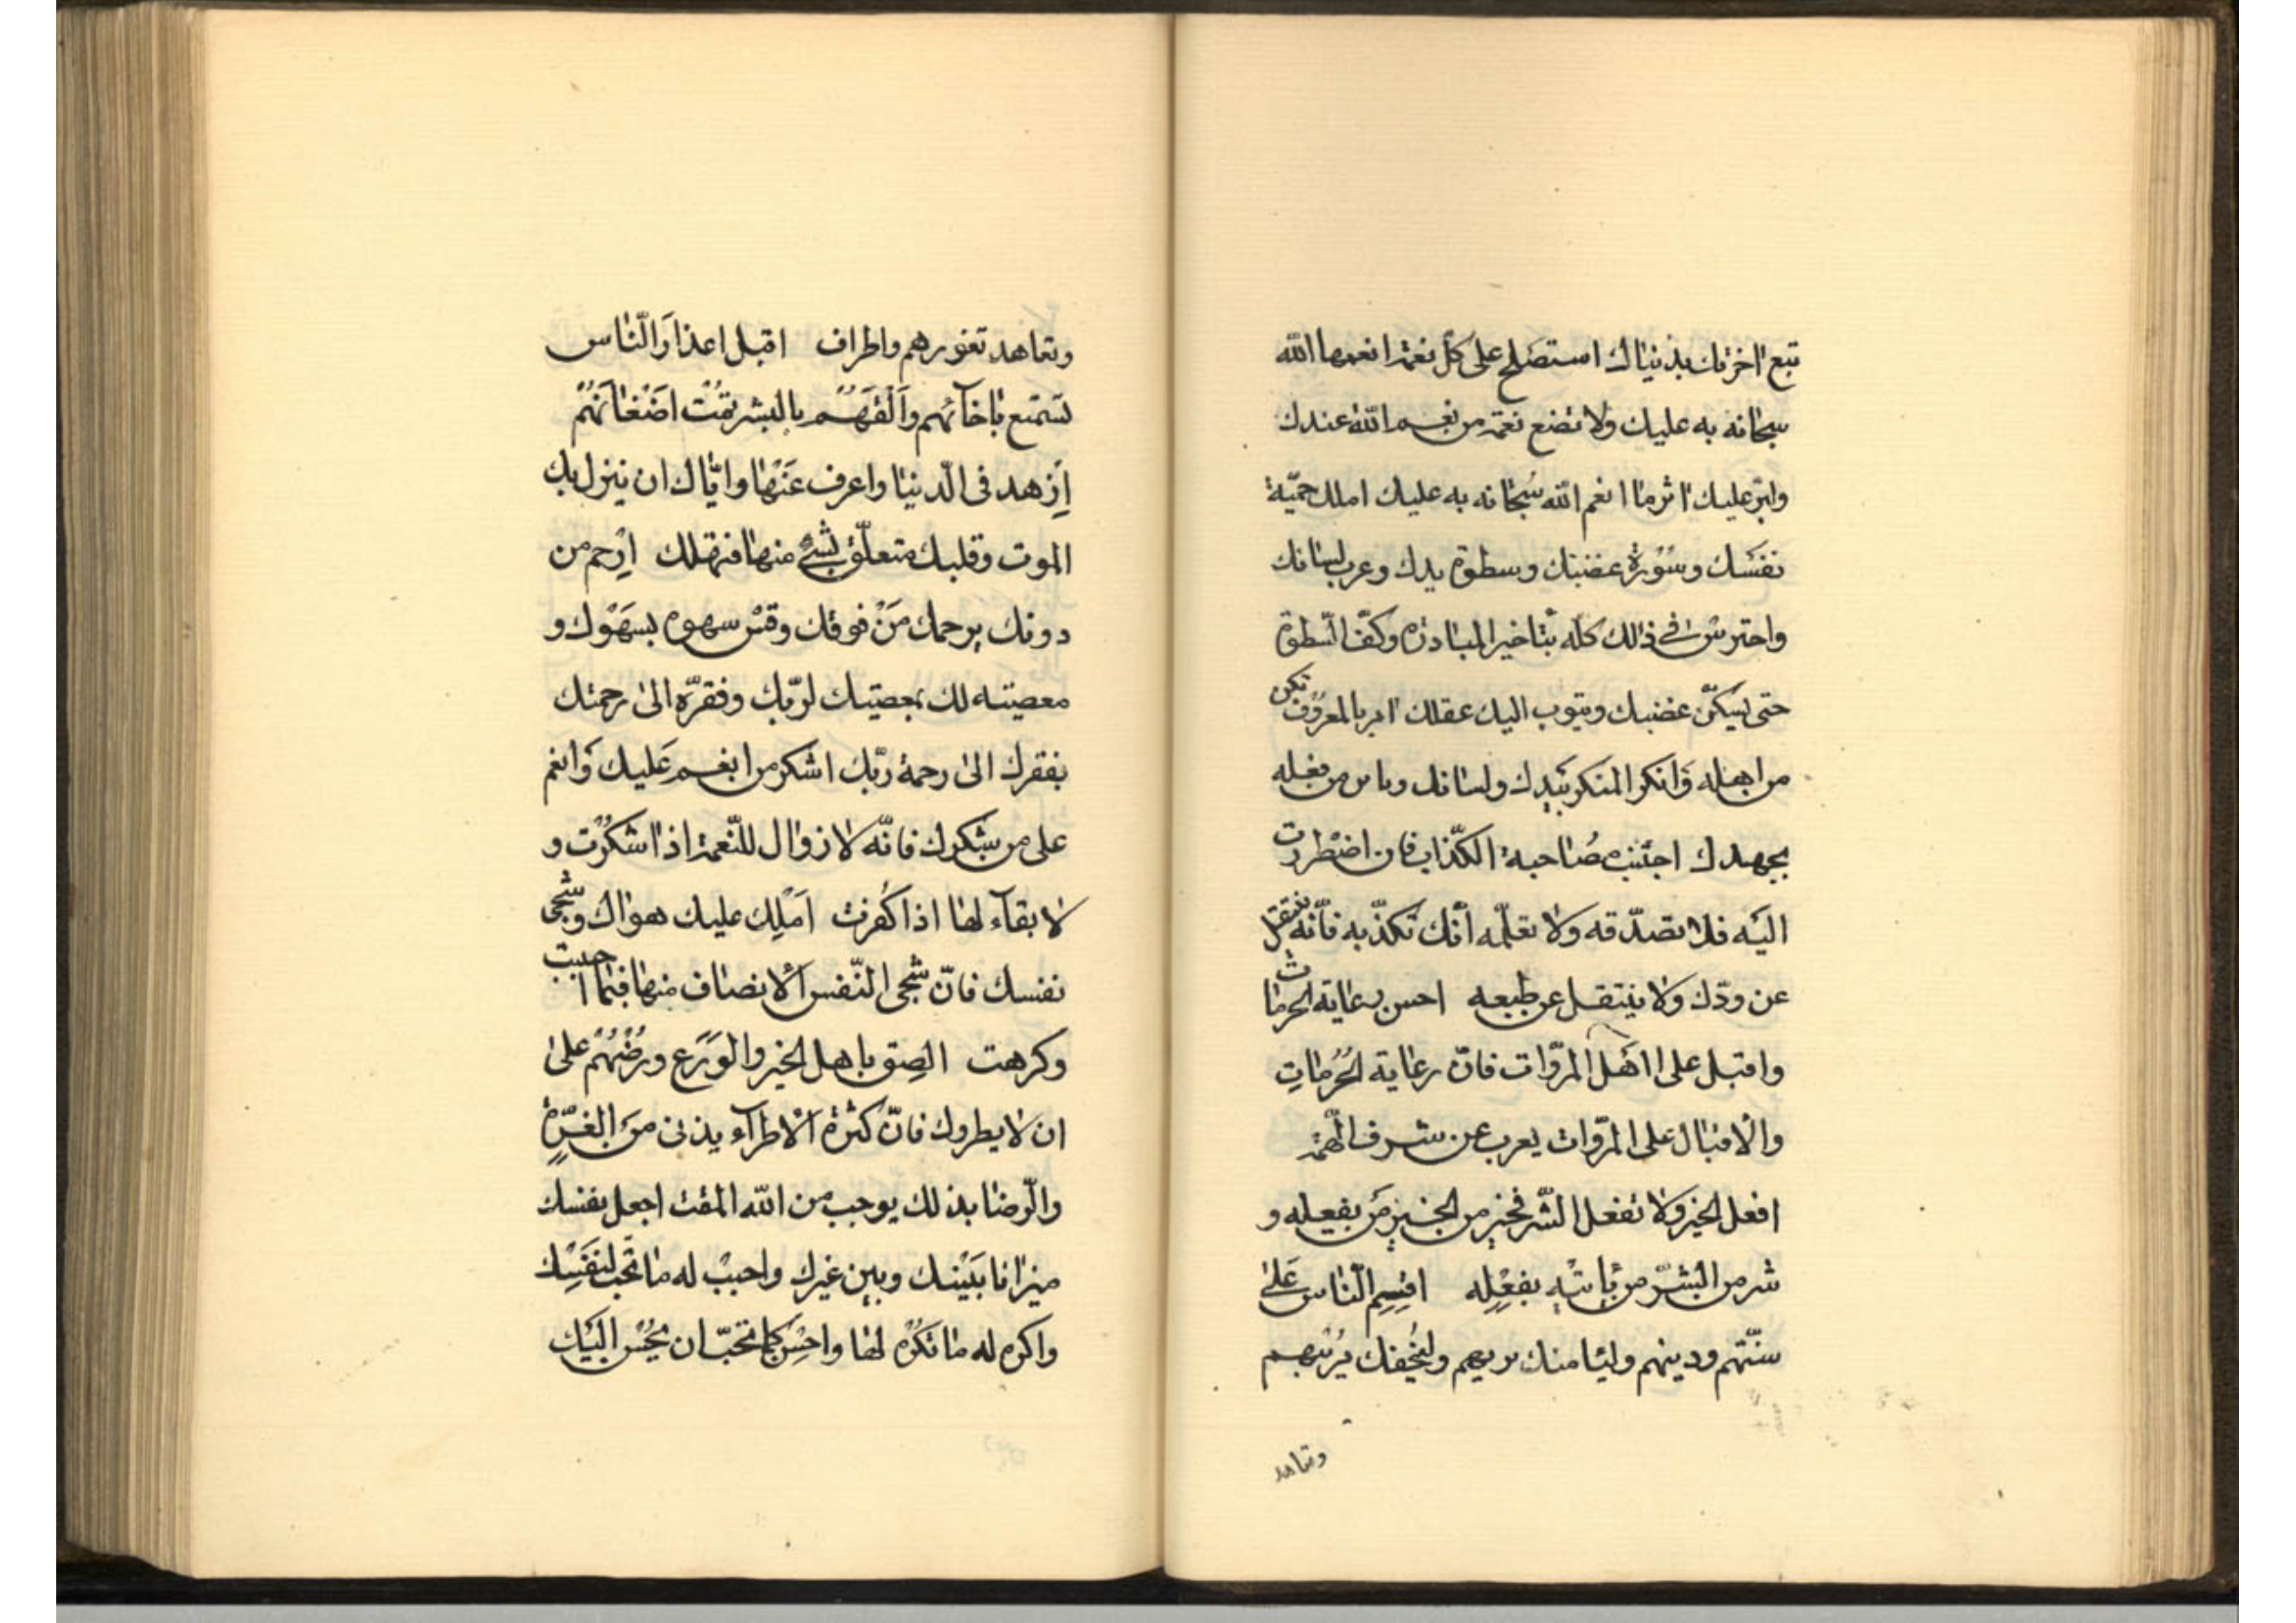 تبع اخرتك بدنياك استصلح على كلّ نعمة انعمها الله
سبحانه به عليك ولا تضع نعمة من نعم الله عندك
ولير عليك اثر ما انعم الله سُبحانه به عليك املك حميّة
نفسَك وسُوْرة غضبك وسطوة يدك وغرب لسانك
واحترس في ذلك كله بتاخير المبادرة وكفّ السّطوة
حتى يسكنّ غضبك ويثوب اليك عقلك امر بالمعرُوف تكن
من اهله وَانكر المنكر بيدك ولسانك وباين من فعله
بجهدك اجتنب مصُاحبة الكذّاب فان اضْطررت
اليَه فلا تصدّقه ولا تعلّمه أنّك تكذّبه فانّه ينتقل
عن ودّك ولا ينتقل عن طبعه احسن رعاية الحرمات
واقبل على اهَل المروّات فانّ رعاية الحُرُماتِ
والاقبال على المروّات يعرب عن شرف الهّمة
افعل الخير وَلا تفعل الشّر فخير من الخير مَن يفعله و
شر من الشّرّ من يأتيه بفِعْلِه اقسِم النّاس عَلى
سنّتهم ودينهم وليامنك بريهم وليخُفك مُريبُهم
وتعاهد
وتعاهد ثغورهم واطراف اقبل اعذارَ النّاس
تستمتع باخآئهم وَالْقَهُمْ بالبشر تمُتْ اضَغْانَهُمْ
اِزهد فى الّدنيا واعزف عَنْها وايّاك ان ينزل بك
الموت وقلبك متعلّق بشئ منها فتهلك اِرْحم من
دونك يرحمك مَنْ فوقك وقسْ سهوه بسَهْوك و
معصيته لك بمعصيتك لربّك وفقرّه الى رحمتك
بفقرك الى رحمة ربّك اشكر من انعم عَليك وَانعم
على من شكرك فانّه لا زوال للنّعمة اذا شكَرْت و
لا بقآء لها اذا كُفرت اَمْلِك عليك هواك وشجى
نفسك فانّ شجى النّفس الانصاف منها فيما احببت
وكرهت الصِق باهل الخير والوَرَع ورُضْهُم على
ان لا يطروك فانّ كثرة الاطرآء يدنى مَن الغرّة
والّرضا بذلك يوجب من الله المقت اجعل نفسك
ميزانا بَيْنك وبين غيرك واحببْ له ما تُحب لنَفْسِك
واكره له ما تكْرُه لها واحْسِن كما تحبّ ان يُحْسن اليَك